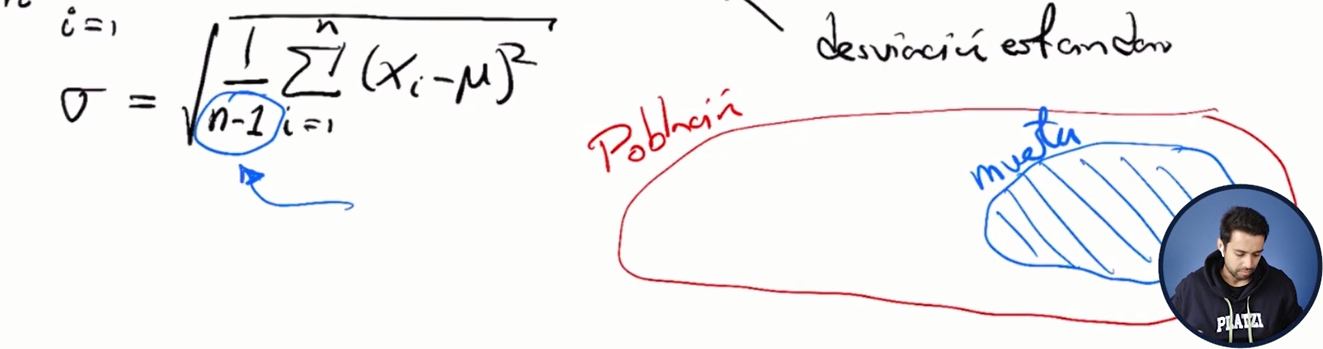 i=1
σ = √ 1/(n-1) n Σ i=1 (xᵢ-μ)²
desviación estandar
Población
muestra
PLATZI